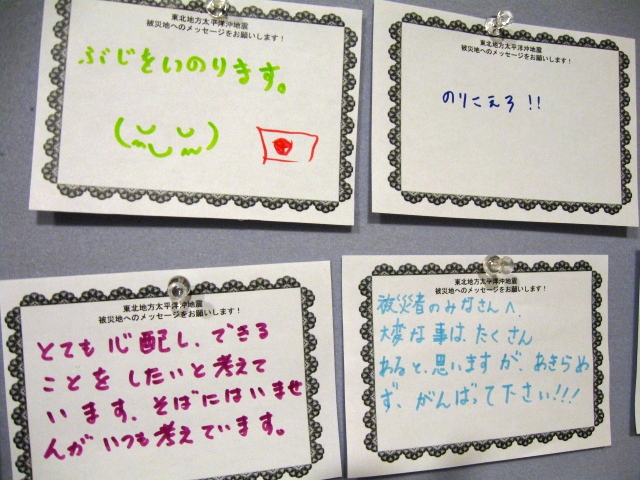 東北地方太平洋沖地震
被災地へのメッセージをお願いします！
ぶじをいのります。
東北地方太平洋沖地震
被災地へのメッセージをお願いします！
のりこえろ！！
東北地方太平洋沖地震
被災地へのメッセージをお願いします！
とても心配し、できる
ことをしたいと考えて
います、そばにはいませ
んがいつも考えています。
東北地方太平洋沖地震
被災地へのメッセージをお願いします！
被災者のみなさんへ、
大変な事は、たくさん
あると、思いますが、あきらめ
ず、がんばって下さい!!!